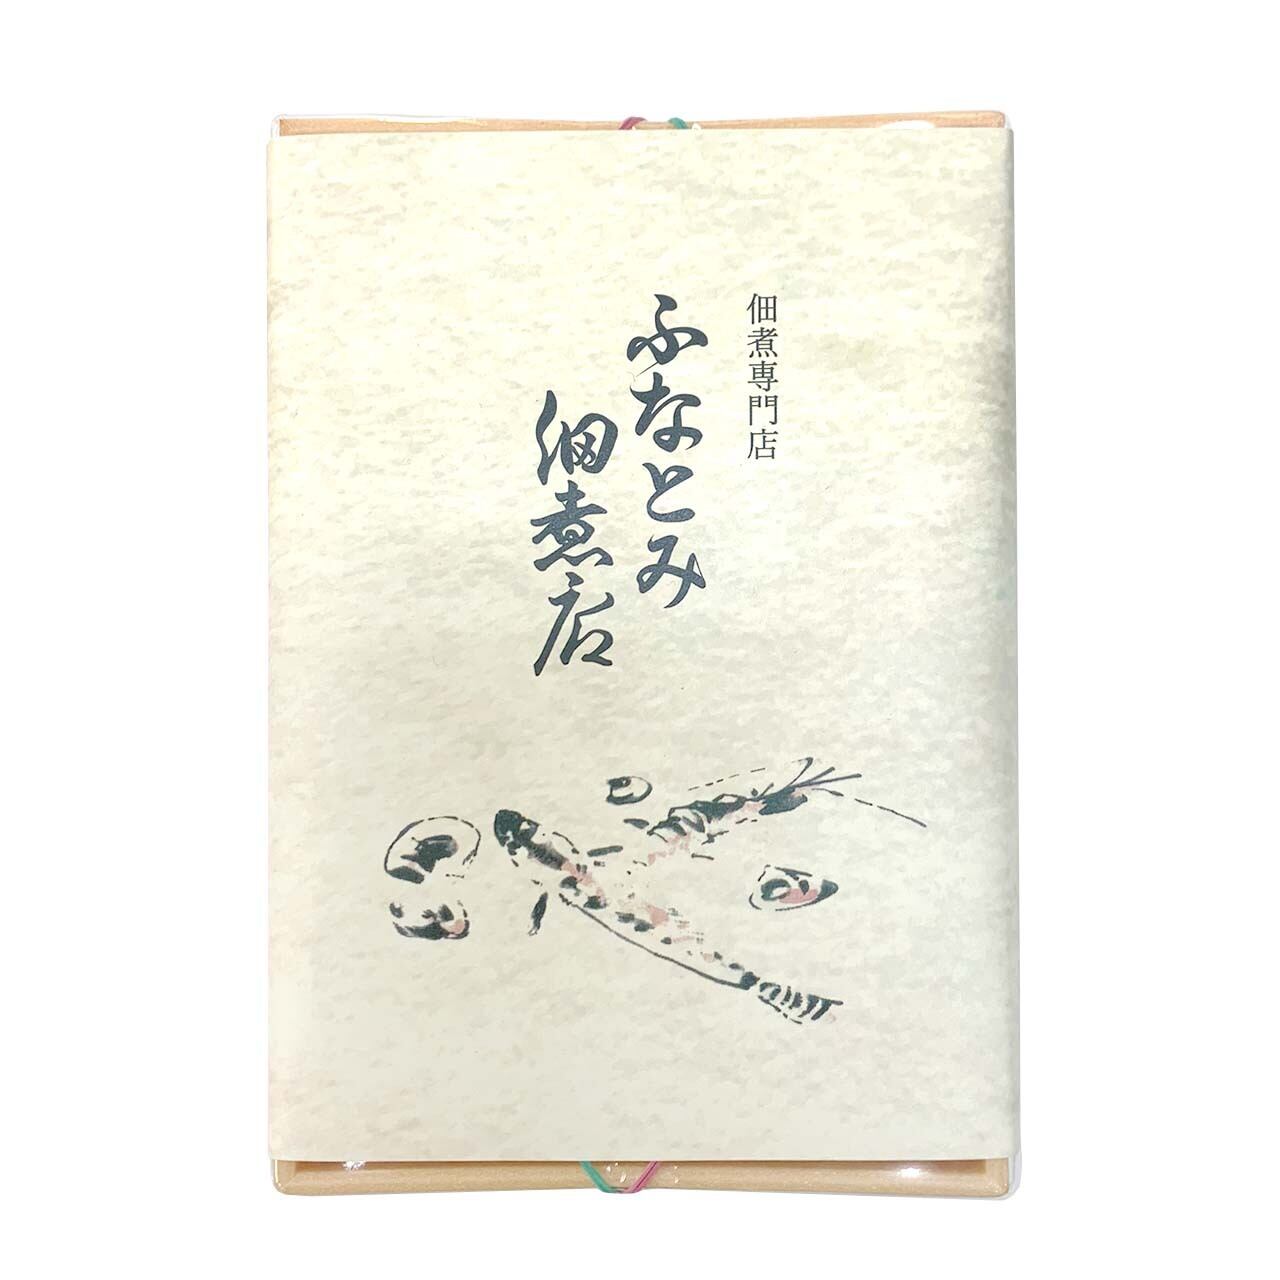 佃煮専門店
ふなとみ
佃煮店